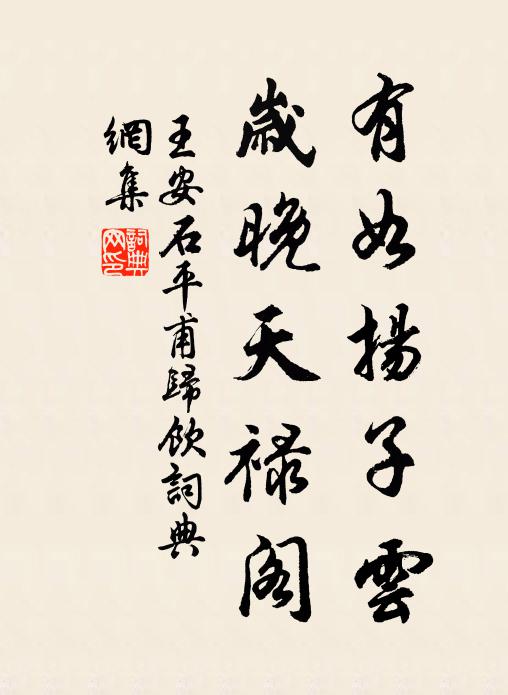 有如揚子雲
歲晚天祿閣
王安石平甫歸飲詞典
網集
詞典網印